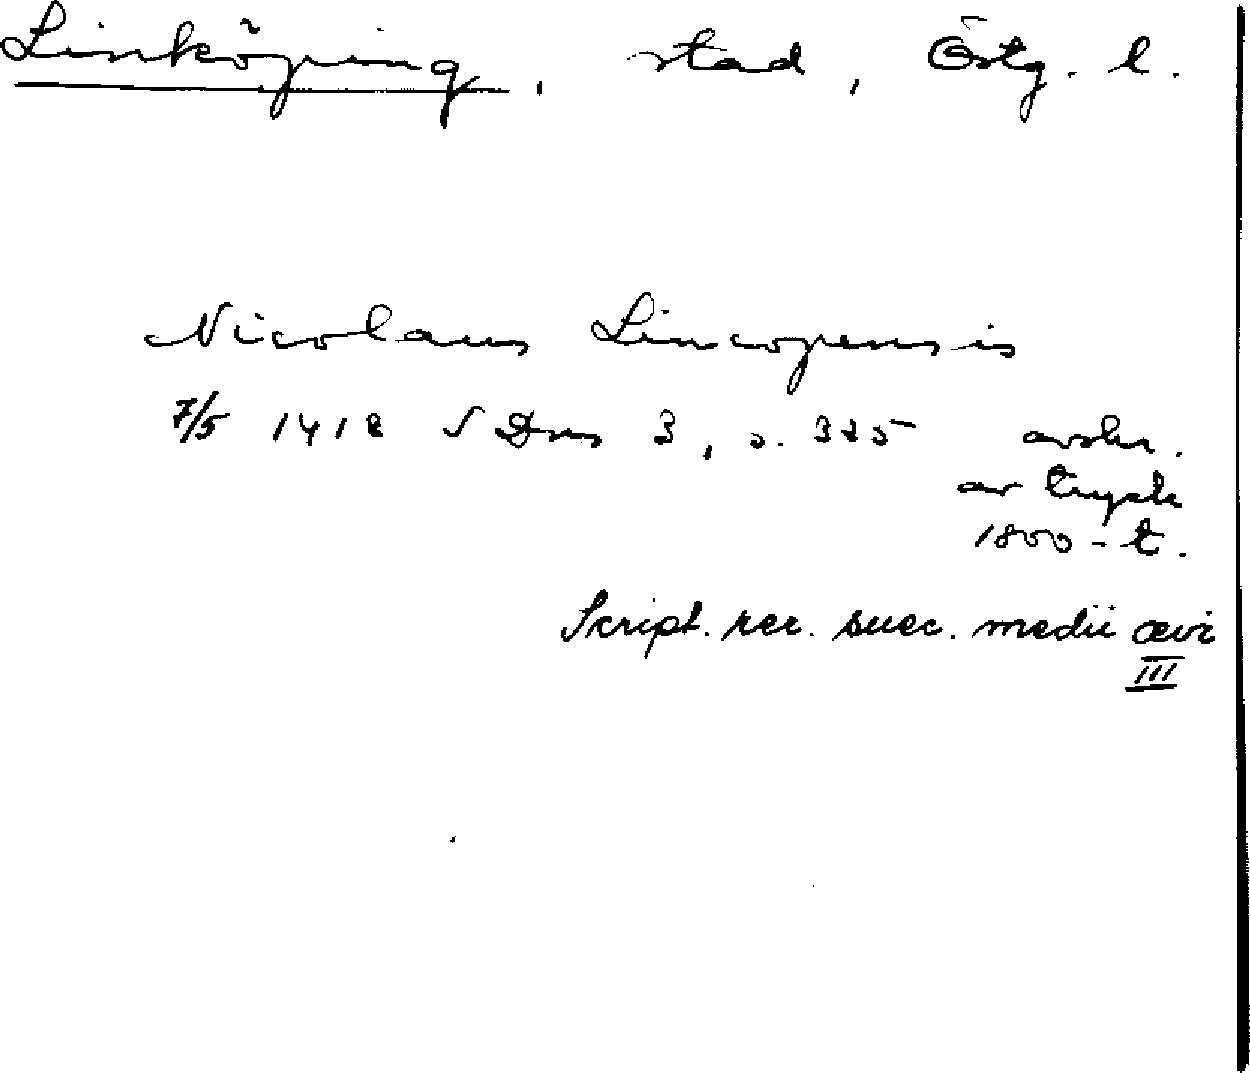 Linköping, stad, Östg. l.
Nicolaus Lincopensis
7/5 1412 SDns 3, s. 325 avskr.
av tryck
1800-t.
Script. rer. suec. medii ævi
III